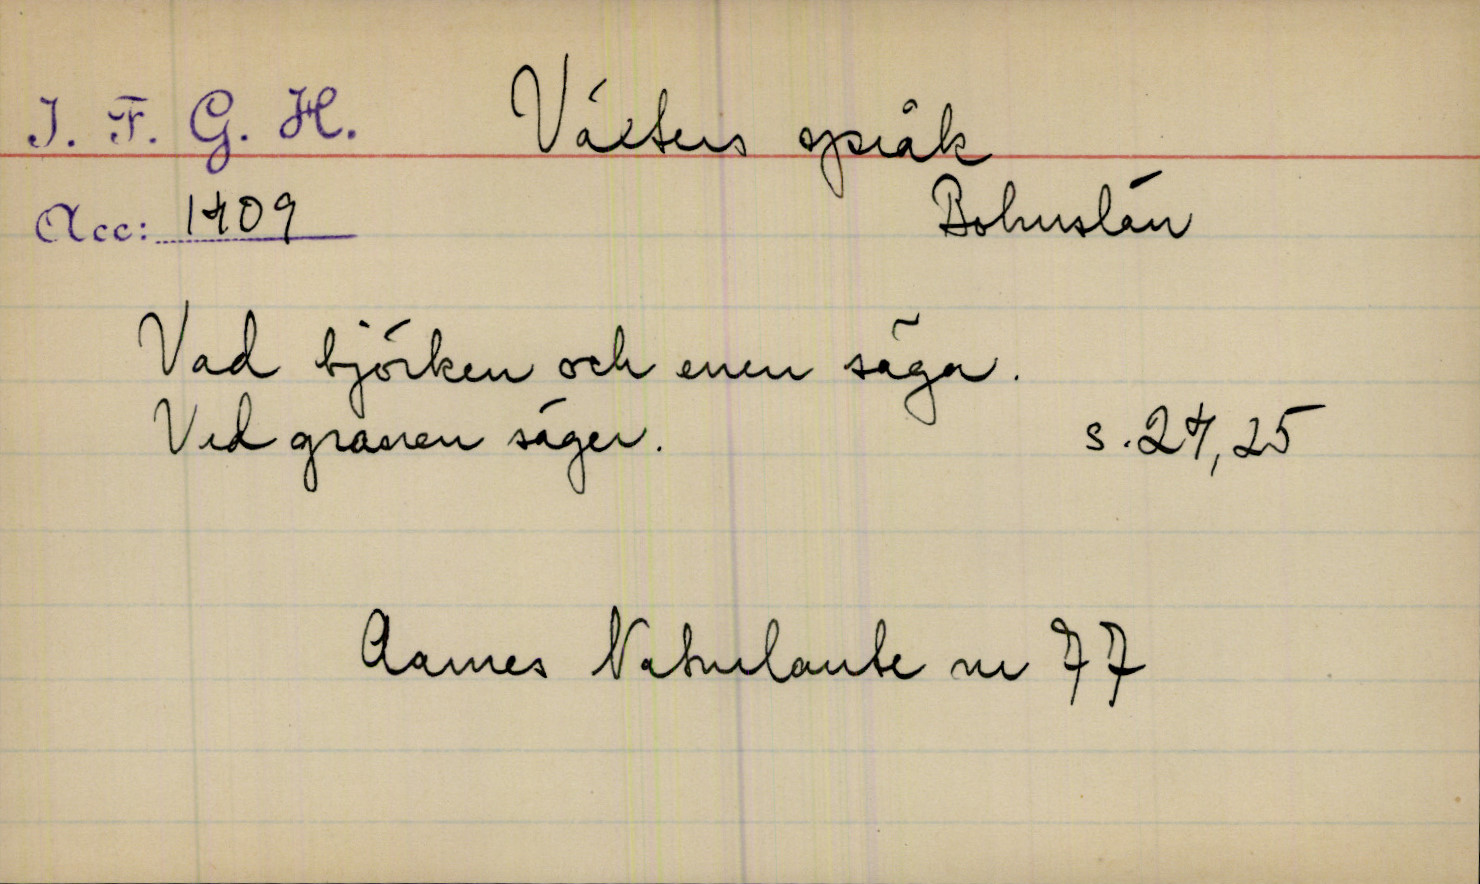 I. F. G. H. Växters språk
Acc: 1409 Bohuslän
Vad björken och enen säga.
Vad granen säger. s. 24, 25
Aarnes Naturlaute nr 77